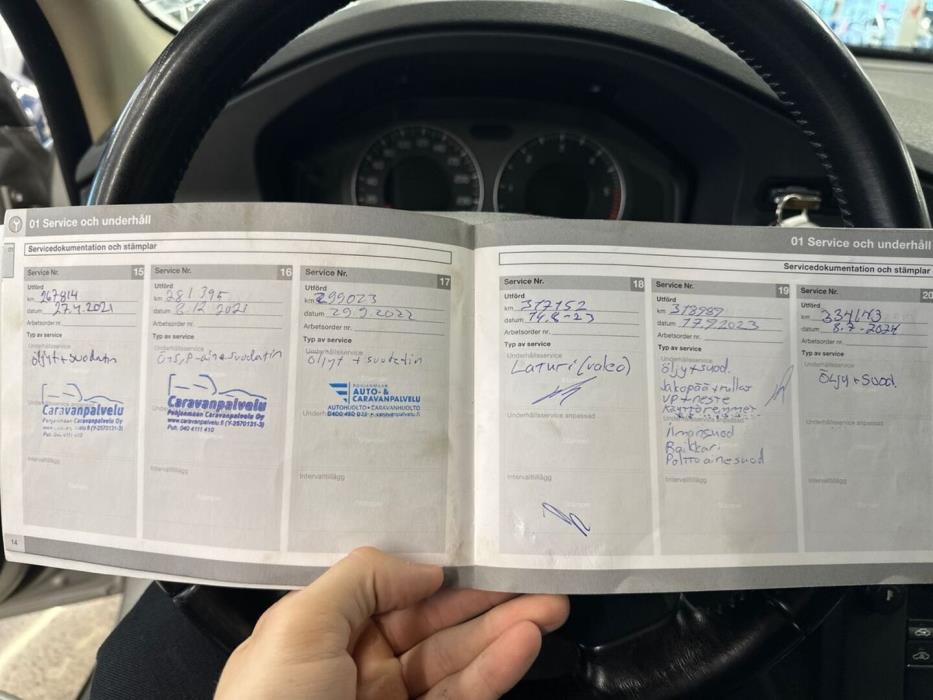 01 Service och underhåll
Servicedokumentation och stämplar
Service Nr. 15
Utförd
km 267814
datum 27.4.2021
Arbetsorder nr.
Typ av service
Underhållsservice
Öljyt + suodatin
Caravanpalvelu
Pohjanmaan Caravanpalvelu Oy
Intervalltillägg
14
Service Nr. 16
Utförd
km 281 395
datum 8.12 2021
Arbetsorder nr.
Typ av service
Underhållsservice
Caravanpalvelu
Pohjanmaan Caravanpalvelu Oy
www.caravanpalvelu.fi (Y-2570131-3)
Puh. 040 4111 410
Intervalltillägg
Service Nr. 17
Utförd
km 299023
datum 29.9.2022
Arbetsorder nr.
Typ av service
Underhållsservice
Öljyt + suodatin
POHJANMAAN
AUTO- &
CARAVANPALVELU
AUTOHUOLTO • CARAVANHUOLTO
Intervalltillägg
01 Service och underhåll
Servicedokumentation och stämplar
Service Nr. 18
Utförd
km 317152
datum 14.8-23
Arbetsorder nr.
Typ av service
Underhållsservice
Laturi (valeo)
Underhållsservice anpassad
Intervalltillägg
Service Nr. 19
Utförd
km 318989
datum 17.9.2023
Arbetsorder nr.
Typ av service
Underhållsservice
Öljy + suod.
Jakopää + rullat
VP + neste
Ilmansuod
Raikkari
Polttoainesuod
Intervalltillägg
Service Nr. 20
Utförd
km 334143
datum 8.7-2024
Arbetsorder nr.
Typ av service
Underhållsservice
Öljy + suod.
Underhållsservice anpassad
Intervalltillägg